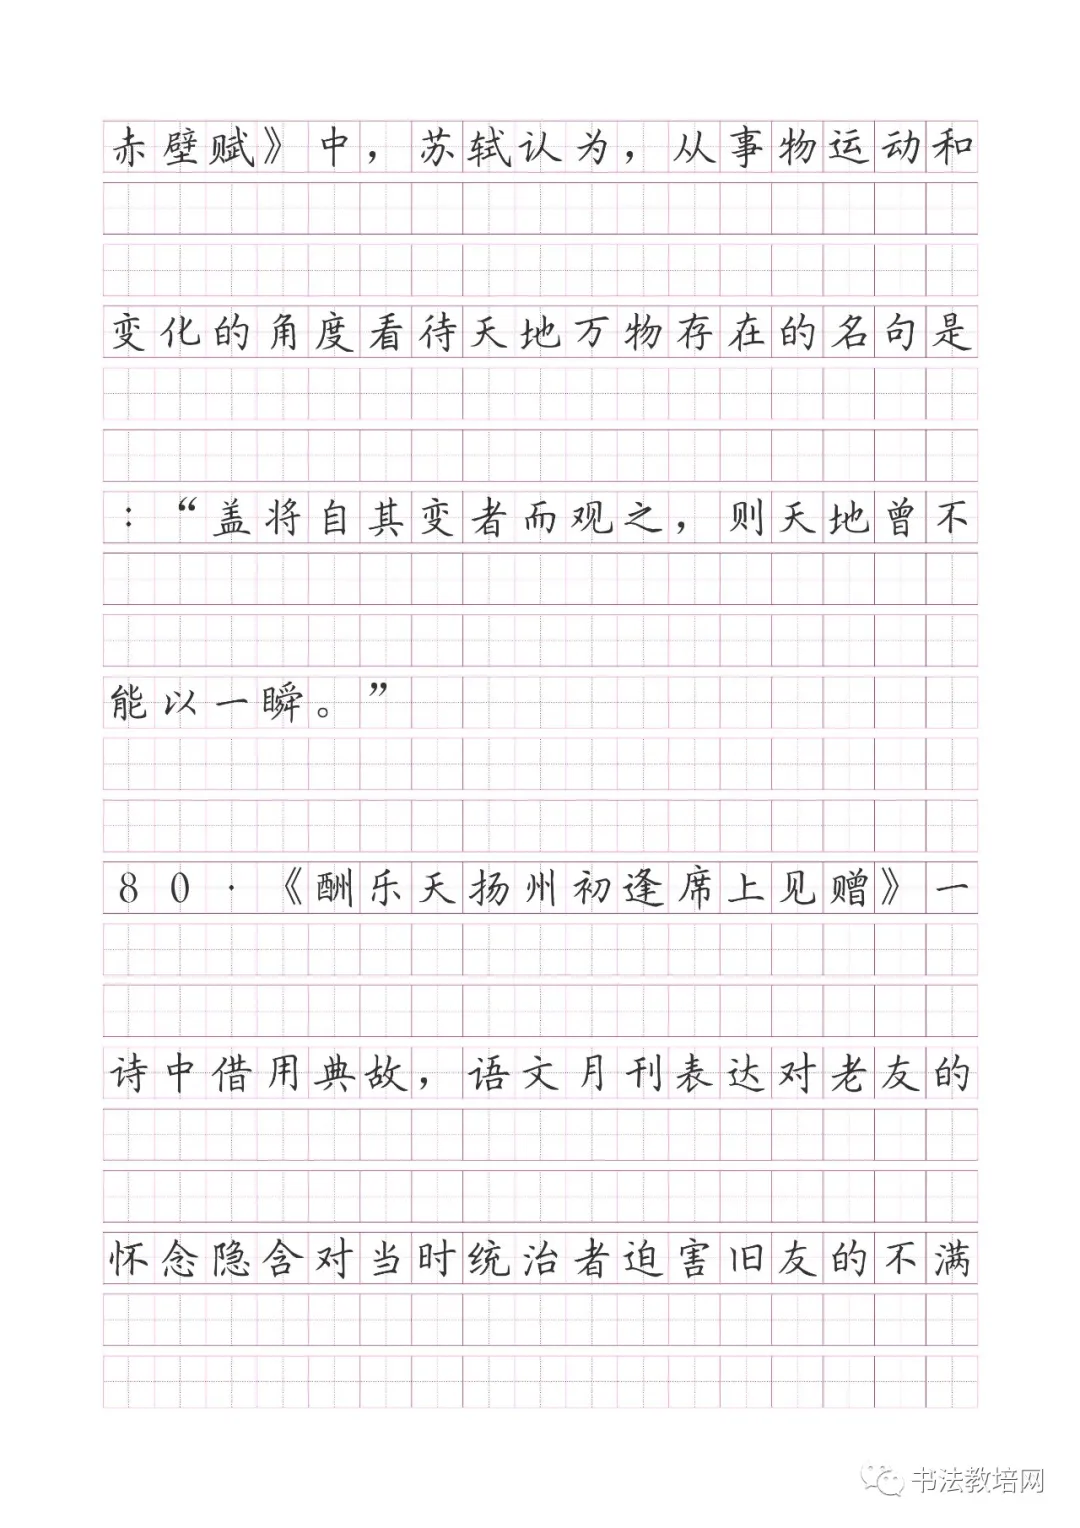 赤壁赋》中，苏轼认为，从事物运动和
变化的角度看待天地万物存在的名句是
：“盖将自其变者而观之，则天地曾不
能以一瞬。”
80·《酬乐天扬州初逢席上见赠》一
诗中借用典故，语文月刊表达对老友的
怀念隐含对当时统治者迫害旧友的不满
书法教培网